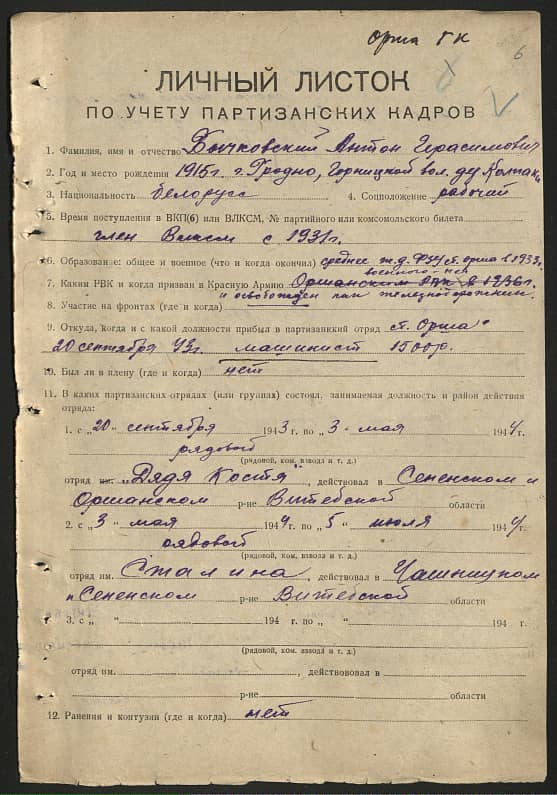 Орша ГК
6
ЛИЧНЫЙ ЛИСТОК
ПО УЧЕТУ ПАРТИЗАНСКИХ КАДРОВ
1. Фамилия, имя и отчество Бычковский Антон Герасимович
2. Год и место рождения 1915 г. г. Гродно, Горницкой вол. ду Колпаки
3. Национальность белорусс 4. Соцположение рабочий
5. Время поступления в ВКП(б) или ВЛКСМ, № партийного или комсомольского билета
член Влксм с 1931 г.
6. Образование: общее и военное (что и когда окончил) среднее ж.д. ФЗУ ст. орша в 1933г.
военного - нет
7. Каким РВК и когда призван в Красную Армию Оршанским РВК в 1936 г.
и освобожден как железнодорожник
8. Участие на фронтах (где и когда)
9. Откуда, когда и с какой должности прибыл в партизанкий отряд ст. Орша
20 сентября 43г. машинист 1500р.
10. Был ли в плену (где и когда) нет
11. В каких партизанских отрядах (или группах) состоял, занимаемая должность и район действия
отряда:
1. с „20" сентября 1943 г. по „3. мая 1944 г.
рядовой
(рядовой, ком. взвода и т. д.)
отряд им. „Дядя Костя", действовал в Сененском и
Оршанском р-не Витебской области
2. с „3" мая 1944 г. по „5" июля 1944 г.
рядовой
(рядовой, ком. взвода и т. д.)
отряд им. Сталина, действовал в Чашницком
и Сененском р-не Витебской области
3. с „ " 194 г. по „ " 194 г.
(рядовой, ком. взвода и т. д.)
отряд им. , действововал в
р-не области
12. Ранения и контузии (где и когда) нет